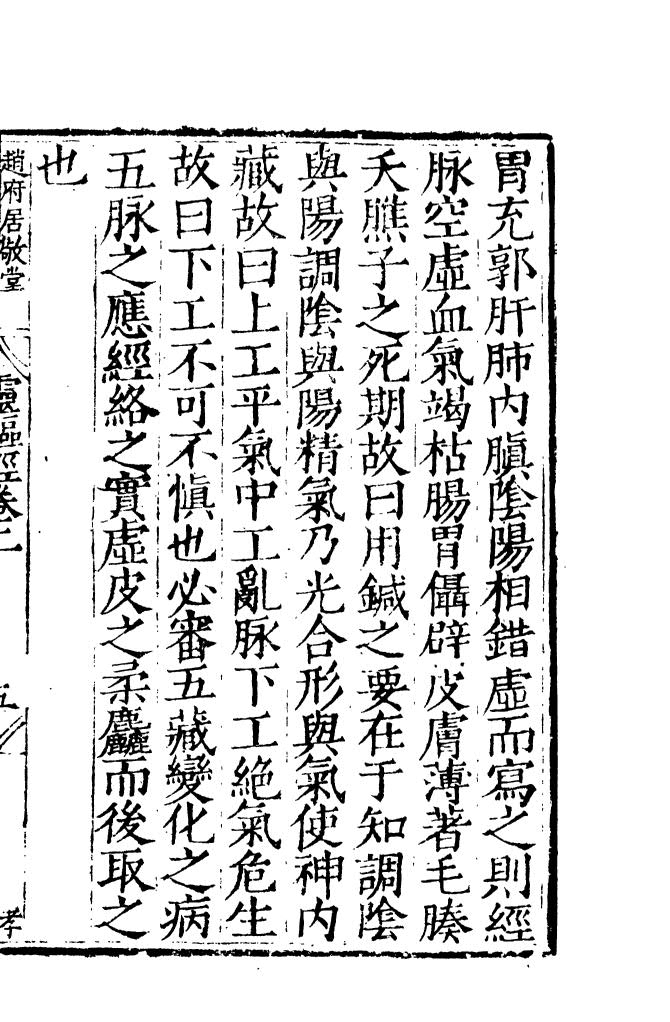 胃充郭肝肺内䐜隂陽相錯虛而寫之則經
脉空虛血氣竭枯腸胃㒤辟皮膚薄著毛腠
夭膲子之死期故曰用鍼之要在于知調隂
與陽調隂與陽精氣乃光合形與氣使神内
藏故曰上工平氣中工亂脉下工絕氣危生
故曰下工不可不慎也必審五藏變化之病
五脉之應經絡之實虛皮之柔麤而後取之
也
趙府居敬堂
靈樞經卷二
五
孝